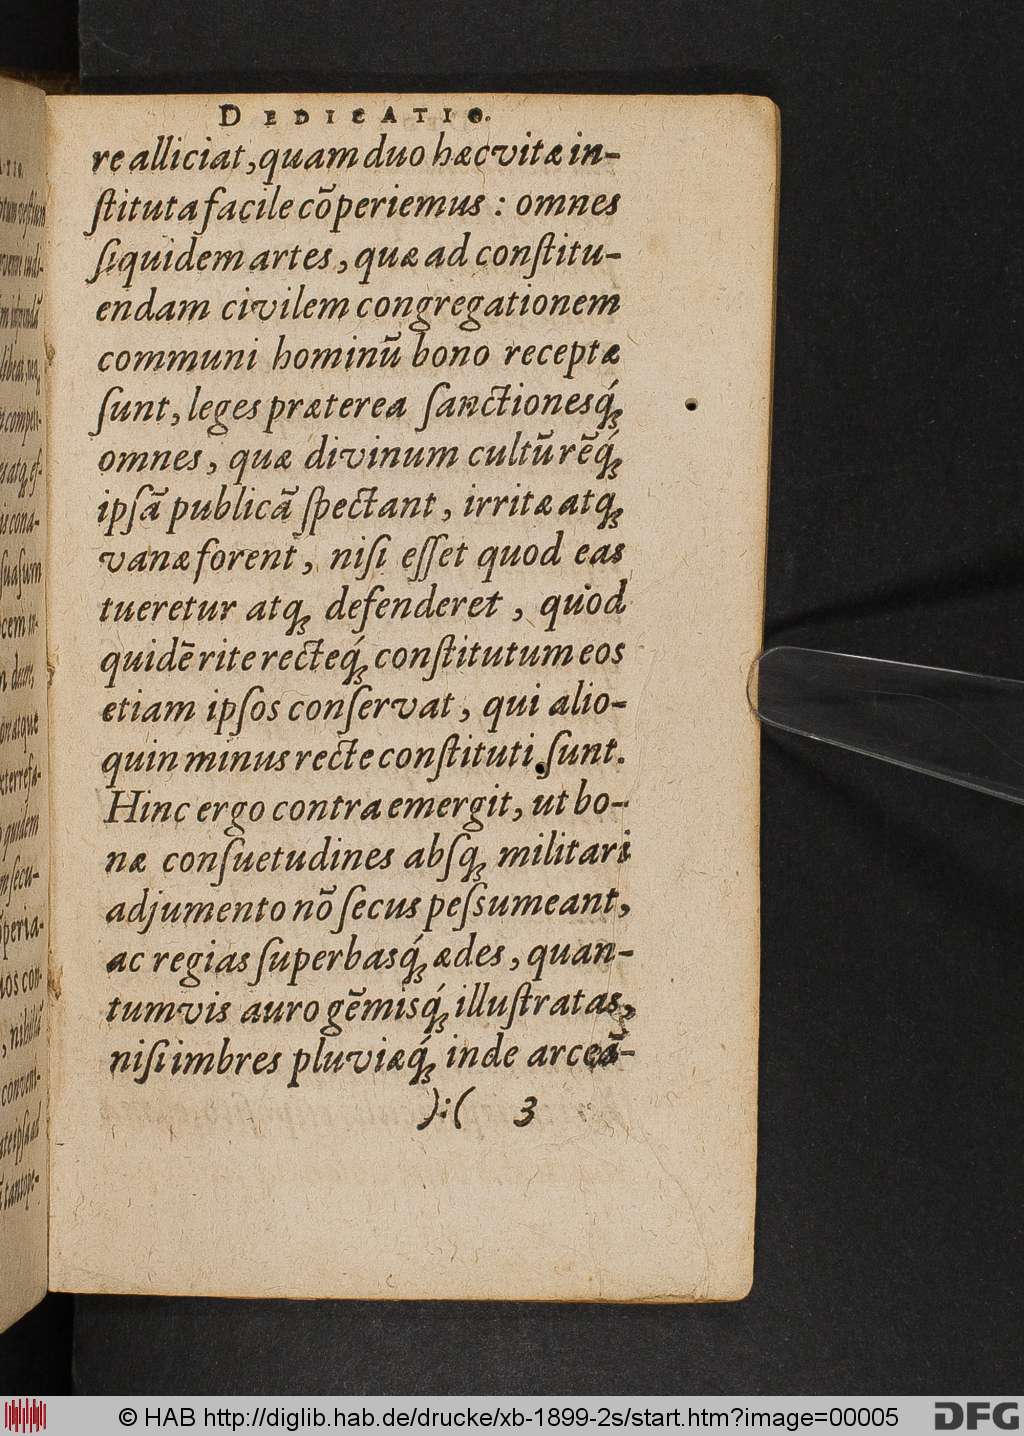 DEDICATIO.
re alliciat, quam duo hæc vitæ in-
ſtituta facile cõperiemus : omnes
ſiquidem artes, quæ ad conſtitu-
endam civilem congregationem
communi hominũ bono receptæ
ſunt, leges præterea ſanctionesq́;
omnes, quæ divinum cultũ rẽq́;
ipſã publicã ſpectant, irritæ atq;
vanæ forent, niſi eſſet quod eas
tueretur atq; defenderet, quod
quidẽ rite recteq́; conſtitutum eos
etiam ipſos conſervat, qui alio-
quin minus recte conſtituti ſunt.
Hinc ergo contra emergit, ut bo-
næ conſuetudines abſq; militari
adjumento nõ ſecus peſsumeant,
ac regias ſuperbasq́; ædes, quan-
tumvis auro gẽmisq́; illuſtratas,
niſi imbres pluviæq́; inde arceã-
):( 3
© HAB http://diglib.hab.de/drucke/xb-1899-2s/start.htm?image=00005
DFG